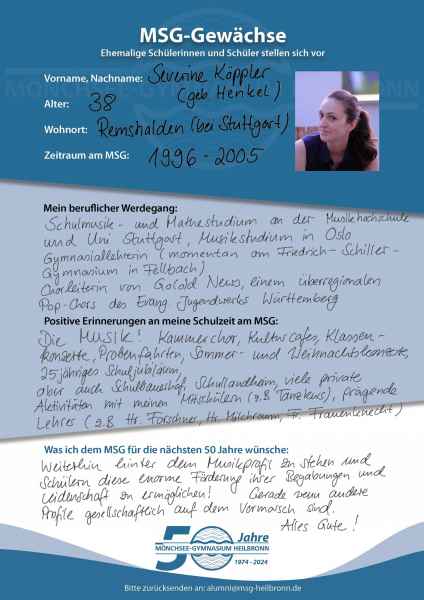 MSG-Gewächse
Ehemalige Schülerinnen und Schüler stellen sich vor
Vorname, Nachname: Severine Köppler
(geb. Henkel)
Alter: 38
Wohnort: Remshalden (bei Stuttgart)
Zeitraum am MSG: 1996 - 2005
Mein beruflicher Werdegang:
Schulmusik- und Mathestudium an der Musikhochschule
und Uni Stuttgart, Musikstudium in Oslo
Gymnasiallehrerin (momentan am Friedrich-Schiller-
Gymnasium in Fellbach)
Chorleiterin von Go(o)d News, einem überregionalen
Pop-Chors des Evang. Jugendwerks Württemberg
Positive Erinnerungen an meine Schulzeit am MSG:
Die MUSIK! Kammerchor, Kulturcafes, Klassen-
konzerte, Probenfahrten, Sommer- und Weihnachtskonzerte,
25jähriges Schuljubiläum,
aber auch Schulbauernhof, Schullandheim, viele private
Aktivitäten mit meinen Mitschülern (z.B. Tanzkurs), prägende
Lehrer (z.B. Hr. Forschner, Hr. Fr. Frauenknecht)
Was ich dem MSG für die nächsten 50 Jahre wünsche:
Weiterhin hinter dem Musikprofil zu stehen und
Schülern diese enorme Förderung ihrer Begabungen und
Leidenschaft zu ermöglichen! Gerade wenn andere
Profile gesellschaftlich auf dem Vormarsch sind.
Alles Gute!
50 Jahre
MÖNCHSEE-GYMNASIUM HEILBRONN
1974 - 2024
Bitte zurücksenden an: alumni@msg-heilbronn.de